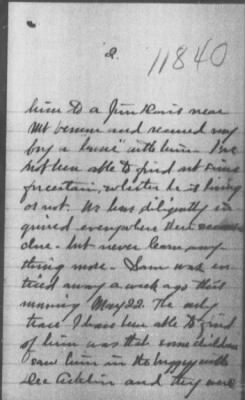 2.
11840
him to a Jim Davis near
Mt Vernon and secured
buy a horse with him. I've
not been able to find out since
for certain, whether he is living
or not. We has diligently in
quired everywhere there
clue - but never learn any
thing more. Sam was en
ticed away a week ago this
morning May 22. The only
trace I have been able to find
of him was that some children
saw him in the buggy with
and they were